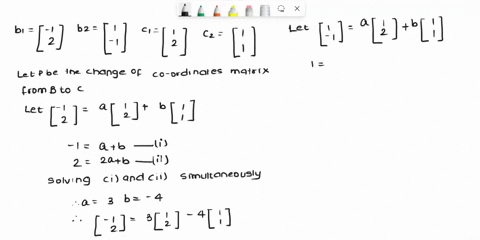 b1 = [-1 2] b2 = [1 -1] c1 = [1 2] c2 = [1 1]
Let P be the change of co-ordinates matrix
from B to C
Let [-1 2] = a [1 2] + b [1 1]
-1 = a+b —(i)
2 = 2a+b —(ii)
Solving (i) and (ii) simultaneously
∴ a = 3 b = -4
∴ [-1 2] = 3 [1 2] - 4 [1 1]
Let [1 -1] = a [1 2] + b [1 1]
1 =